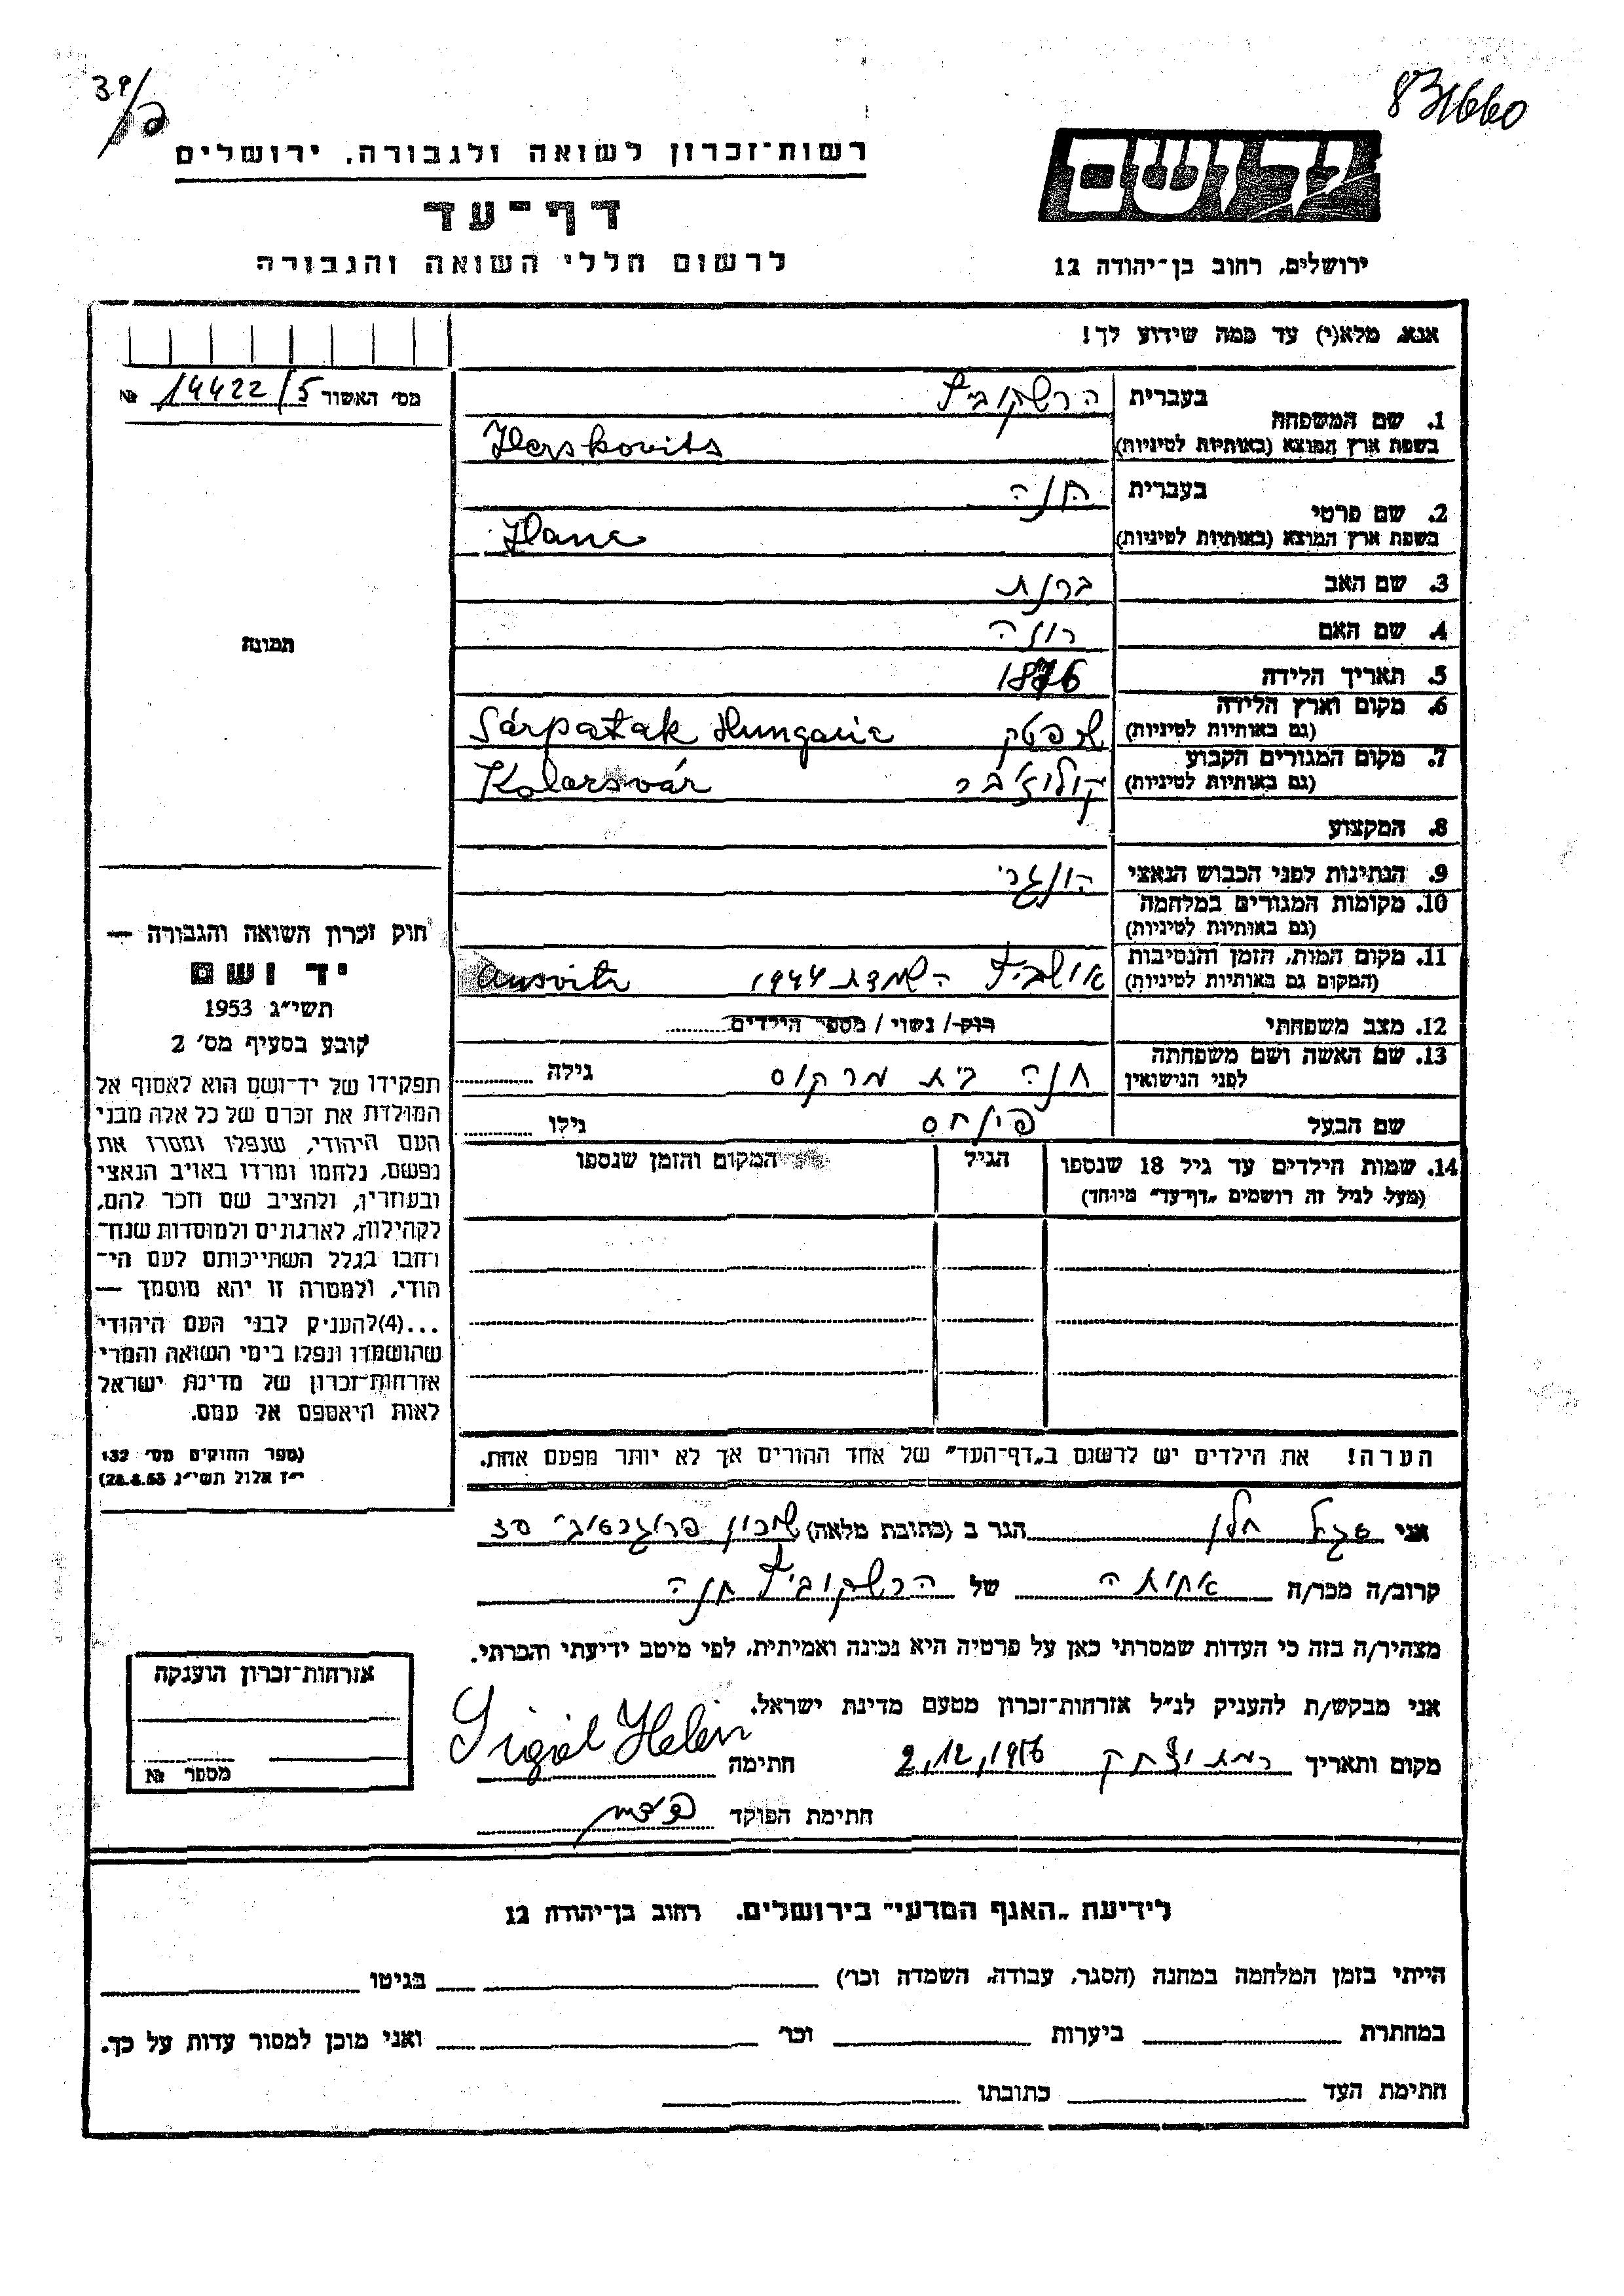 39/ב
831660
רשות־זכרון לשואה ולגבורה, ירושלים
דף־עד
לרשום חללי השואה והגבורה
יד ושם
ירושלים, רחוב בן־יהודה 12
אנא, מלא(י) עד כמה שידוע לך!
מס' האשור 14422/5 №
תמונה
1. שם המשפחה בעברית הרשקוביץ
בשפת ארץ המוצא (באותיות לטיניות) Herskovits
2. שם פרטי בעברית חנה
בשפת ארץ המוצא (באותיות לטיניות) Hana
3. שם האב ברנת
4. שם האם רוזה
5. תאריך הלידה 1876
6. מקום וארץ הלידה
(גם באותיות לטיניות) Sárpatak Hungaria
7. מקום המגורים הקבוע
(גם באותיות לטיניות) קולוז'בר Kolozsvár
8. המקצוע
9. הנתינות לפני הכבוש הנאצי הונגרי
10. מקומות המגורים במלחמה
(גם באותיות לטיניות)
11. מקום המות, הזמן והנסיבות
(המקום גם באותיות לטיניות) אושביץ השמדת 1944 Ausvitz
12. מצב משפחתי רוק/ נשוי/ מספר הילדים
13. שם האשה ושם משפחתה
לפני הנישואין חנה בית מרקוס גילה
שם הבעל פינחס גילו
14. שמות הילדים עד גיל 18 שנספו הגיל המקום והזמן שנספו
(מעל לגיל זה רושמים „דף־עד" מיוחד)
חוק זכרון השואה והגבורה —
יד ושם
תשי"ג 1953
קובע בסעיף מס' 2
תפקידו של יד־ושם הוא לאסוף אל
המולדת את זכרם של כל אלה מבני
העם היהודי, שנפלו ומסרו את
נפשם, נלחמו ומרדו באויב הנאצי
ובעוזריו, ולהציב שם וזכר להם,
לקהילות, לארגונים ולמוסדות שנח־
רבו בגלל השתייכותם לעם הי־
הודי, ולמטרה זו יהא מוסמך —
...(4)להעניק לבני העם היהודי
שהושמדו ונפלו בימי השואה והמרי
אזרחות־זכרון של מדינת ישראל
לאות היאספם אל עמם.
(ספר החוקים מס' 132
י"ז אלול תשי"ג 28.8.53)
הערה! את הילדים יש לרשום ב„דף־העד" של אחד ההורים אך לא יותר מפעם אחת.
אני סגל חלן הגר ב (כתובת מלאה) שכון 30
קרוב/ה מכר/ה אחותה של הרשקוביץ חנה
מצהיר/ה בזה כי העדות שמסרתי כאן על פרטיה היא נכונה ואמיתית, לפי מיטב ידיעתי והכרתי.
אני מבקש/ת להעניק לנ"ל אזרחות־זכרון מטעם מדינת ישראל.
מקום ותאריך רמת יצחק 2,12,1956 חתימה Sigál Helén
חתימת הפוקד
אזרחות־זכרון הוענקה
מספר №
לידיעת „האגף המדעי" בירושלים. רחוב בן־יהודה 12
הייתי בזמן המלחמה במחנה (הסגר, עבודה, השמדה וכו') בגיטו
במחתרת ביערות וכו' ואני מוכן למסור עדות על כך.
חתימת העד כתובתו